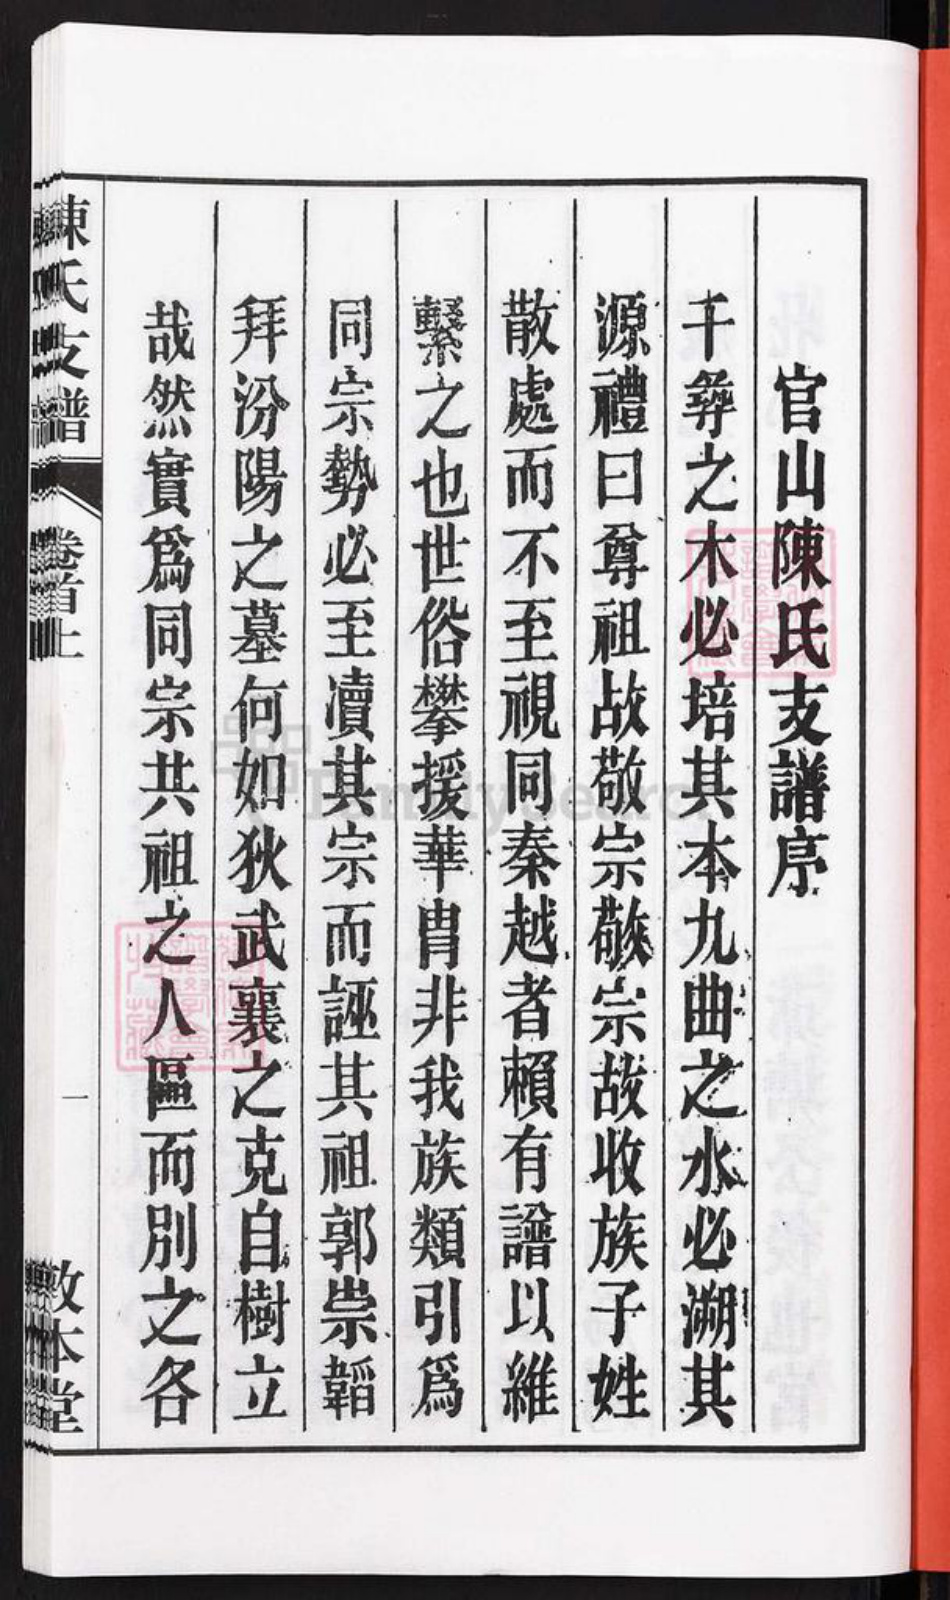 官山陳氏支譜序
千彝之木必培其本九曲之水必溯其
源禮曰尊祖故敬宗敬宗故收族子姓
散處而不至視同秦越者賴有譜以維
繫之也世俗攀援華胄非我族類引爲
同宗勢必至瀆其宗而誣其祖郭崇韜
拜汾陽之墓何如狄武襄之克自樹立
哉然實爲同宗共祖之人區而別之各
陳氏支譜
卷首上
一
敦本堂
FamilySearch